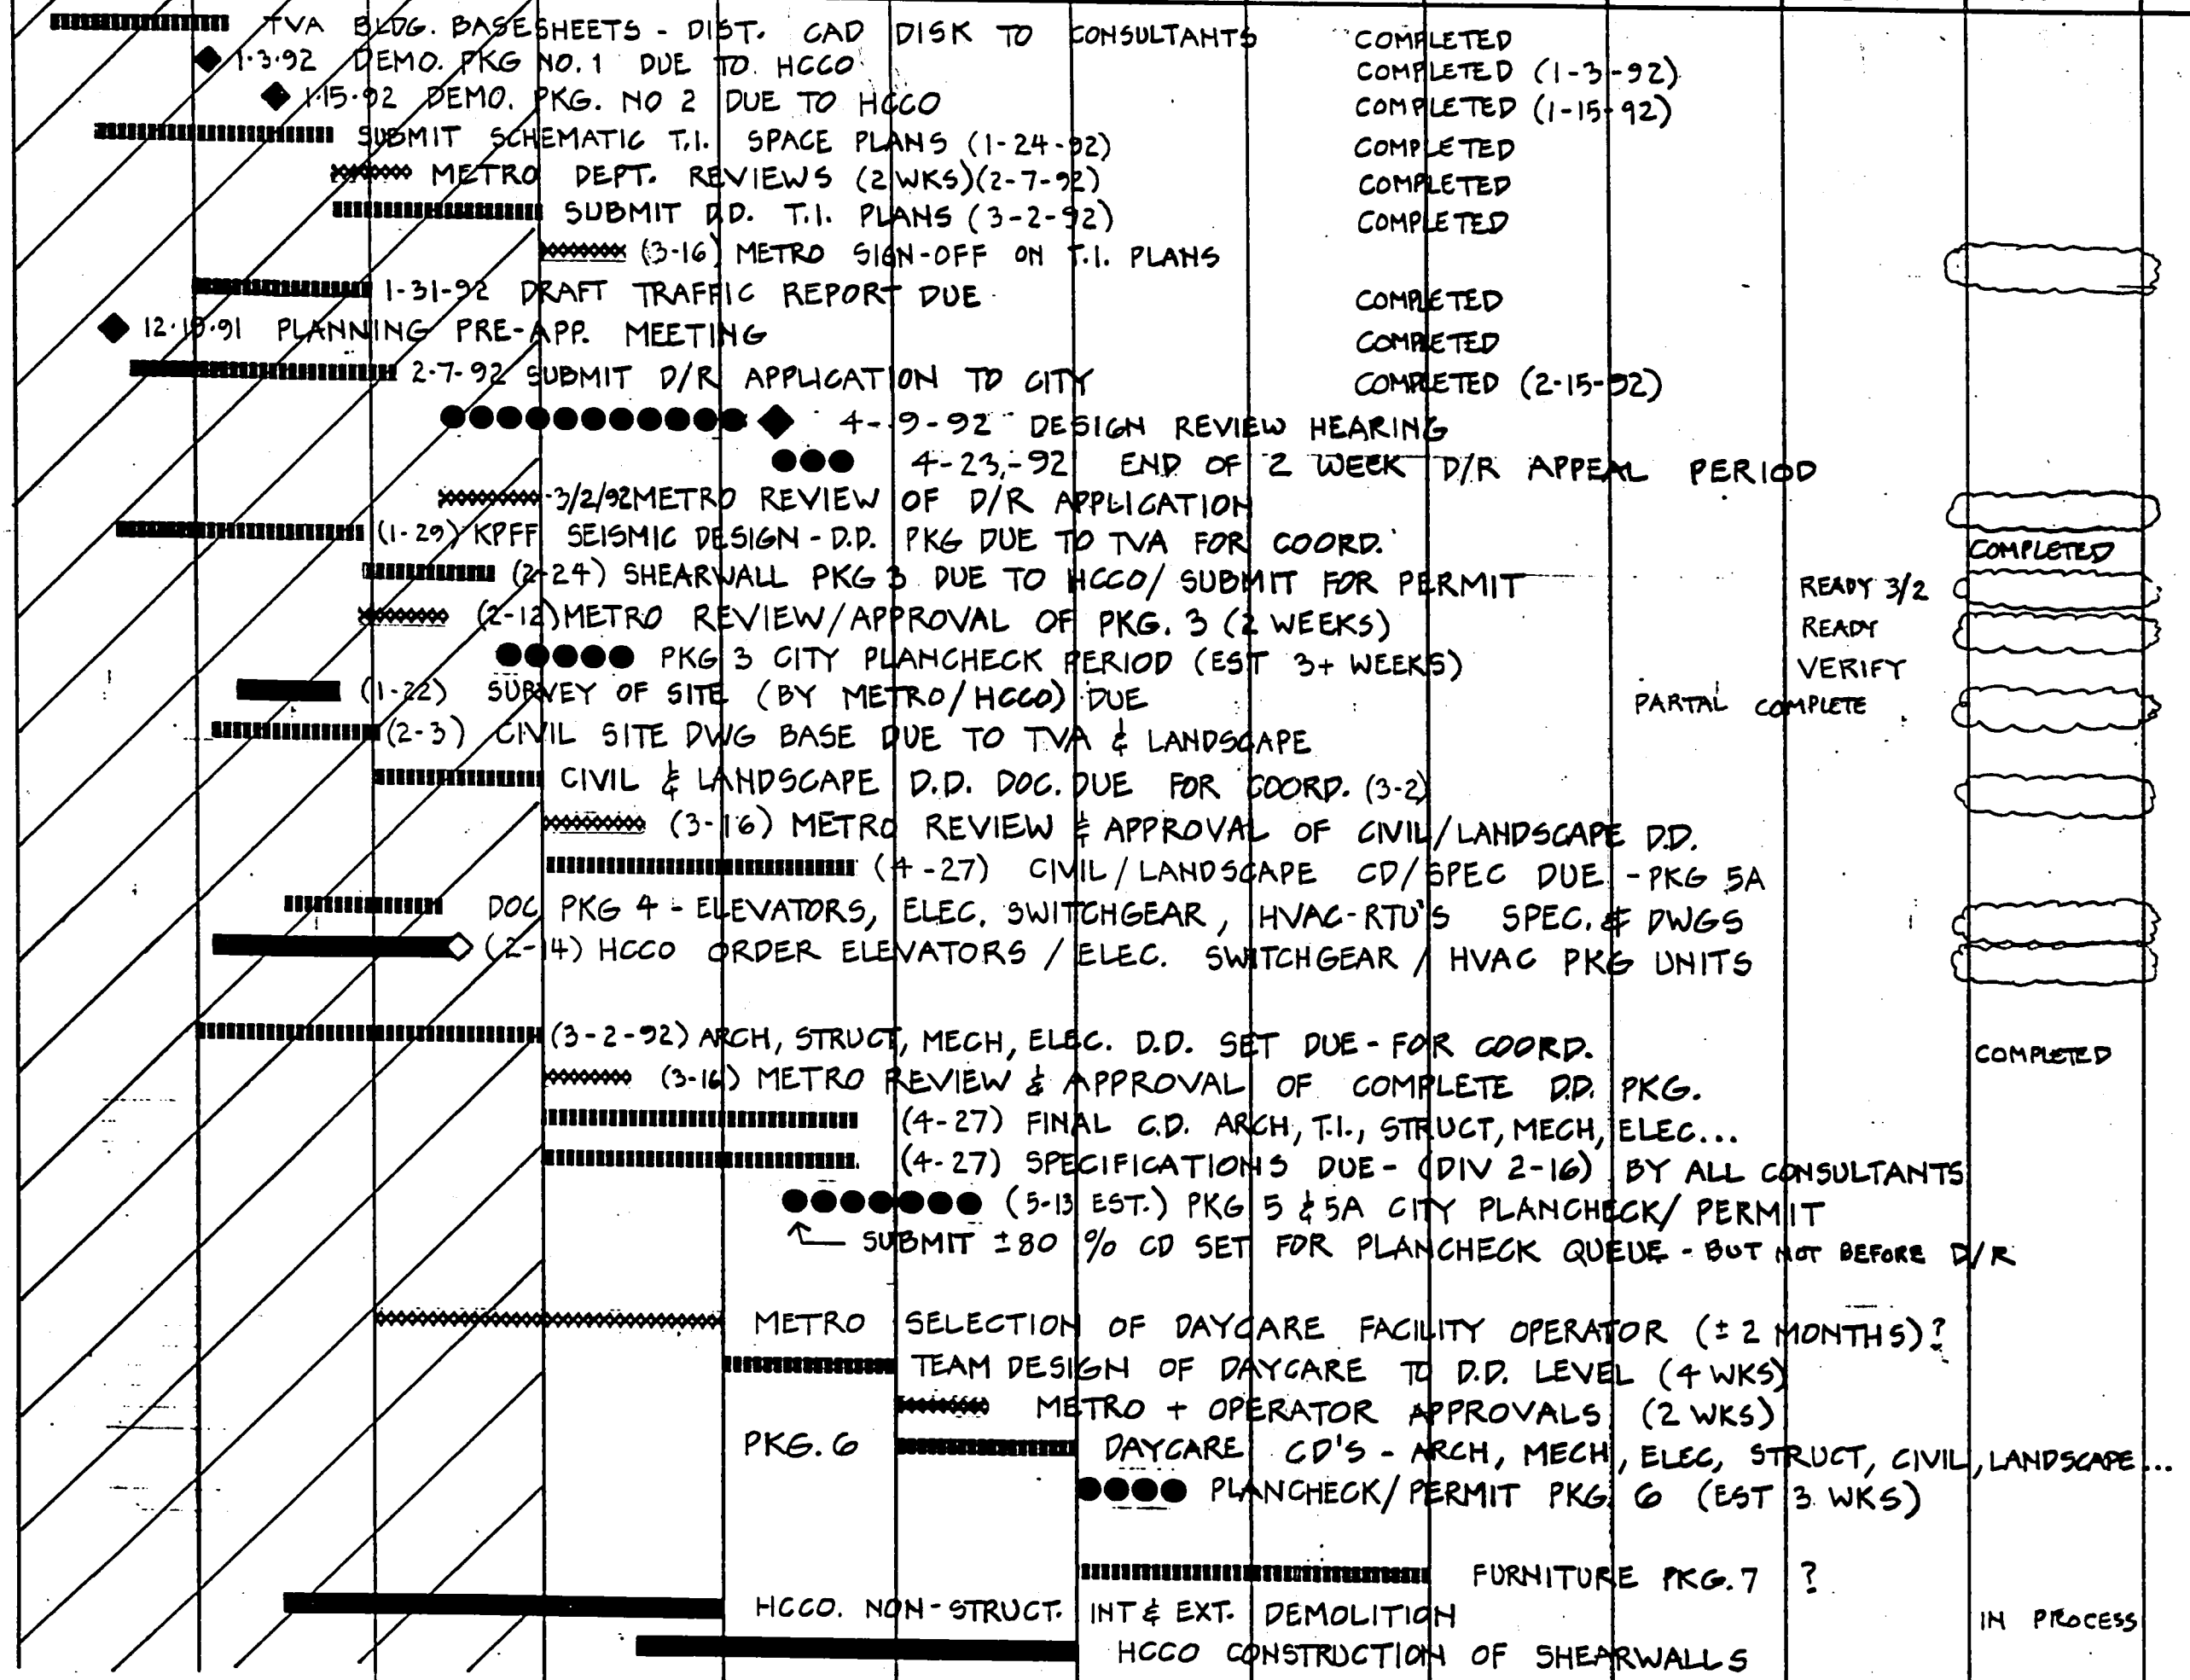 TVA BLDG. BASESHEETS - DIST. CAD DISK TO CONSULTANTS COMPLETED
1-3-92 DEMO. PKG NO. 1 DUE TO HCCO COMPLETED (1-3-92)
1-15-92 DEMO. PKG. NO 2 DUE TO HCCO COMPLETED (1-15-92)
SUBMIT SCHEMATIC T.I. SPACE PLANS (1-24-92) COMPLETED
METRO DEPT. REVIEWS (2 WKS)(2-7-92) COMPLETED
SUBMIT D.D. T.I. PLANS (3-2-92) COMPLETED
(3-16) METRO SIGN-OFF ON T.I. PLANS
1-31-92 DRAFT TRAFFIC REPORT DUE COMPLETED
PLANNING PRE-APP. MEETING COMPLETED
2-7-92 SUBMIT D/R APPLICATION TO CITY COMPLETED (2-15-92)
4-9-92 DESIGN REVIEW HEARING
4-23-92 END OF 2 WEEK D/R APPEAL PERIOD
3/2/92 METRO REVIEW OF D/R APPLICATION
(1-29) KPFF SEISMIC DESIGN - D.D. PKG DUE TO TVA FOR COORD. COMPLETED
(2-24) SHEARWALL PKG 3 DUE TO HCCO/ SUBMIT FOR PERMIT READY 3/2
(2-12) METRO REVIEW/APPROVAL OF PKG. 3 (2 WEEKS) READY
PKG 3 CITY PLANCHECK PERIOD (EST 3+ WEEKS) VERIFY
(1-22) SURVEY OF SITE (BY METRO/HCCO) DUE PARTAL COMPLETE
(2-3) CIVIL SITE DWG BASE DUE TO TVA & LANDSCAPE
CIVIL & LANDSCAPE D.D. DOC. DUE FOR COORD. (3-2)
(3-16) METRO REVIEW & APPROVAL OF CIVIL/LANDSCAPE D.D.
(4-27) CIVIL/LANDSCAPE CD/SPEC DUE - PKG 5A
DOC PKG 4 - ELEVATORS, ELEC. SWITCHGEAR, HVAC-RTU'S SPEC. & DWGS
(2-14) HCCO ORDER ELEVATORS / ELEC. SWITCHGEAR / HVAC PKG UNITS
(3-2-92) ARCH, STRUCT, MECH, ELEC. D.D. SET DUE - FOR COORD. COMPLETED
(3-16) METRO REVIEW & APPROVAL OF COMPLETE D.D. PKG.
(4-27) FINAL C.D. ARCH, T.I., STRUCT, MECH, ELEC...
(4-27) SPECIFICATIONS DUE - (DIV 2-16) BY ALL CONSULTANTS
(5-13 EST.) PKG 5 & 5A CITY PLANCHECK/ PERMIT
SUBMIT ±80 % CD SET FOR PLANCHECK QUEUE - BUT NOT BEFORE D/R
METRO SELECTION OF DAYCARE FACILITY OPERATOR (± 2 MONTHS)?
TEAM DESIGN OF DAYCARE TO D.D. LEVEL (4 WKS)
METRO + OPERATOR APPROVALS (2 WKS)
PKG. 6 DAYCARE CD'S - ARCH, MECH, ELEC, STRUCT, CIVIL, LANDSCAPE...
PLANCHECK/PERMIT PKG 6 (EST 3 WKS)
FURNITURE PKG. 7 ?
HCCO. NON-STRUCT. INT & EXT. DEMOLITION IN PROCESS
HCCO CONSTRUCTION OF SHEARWALLS